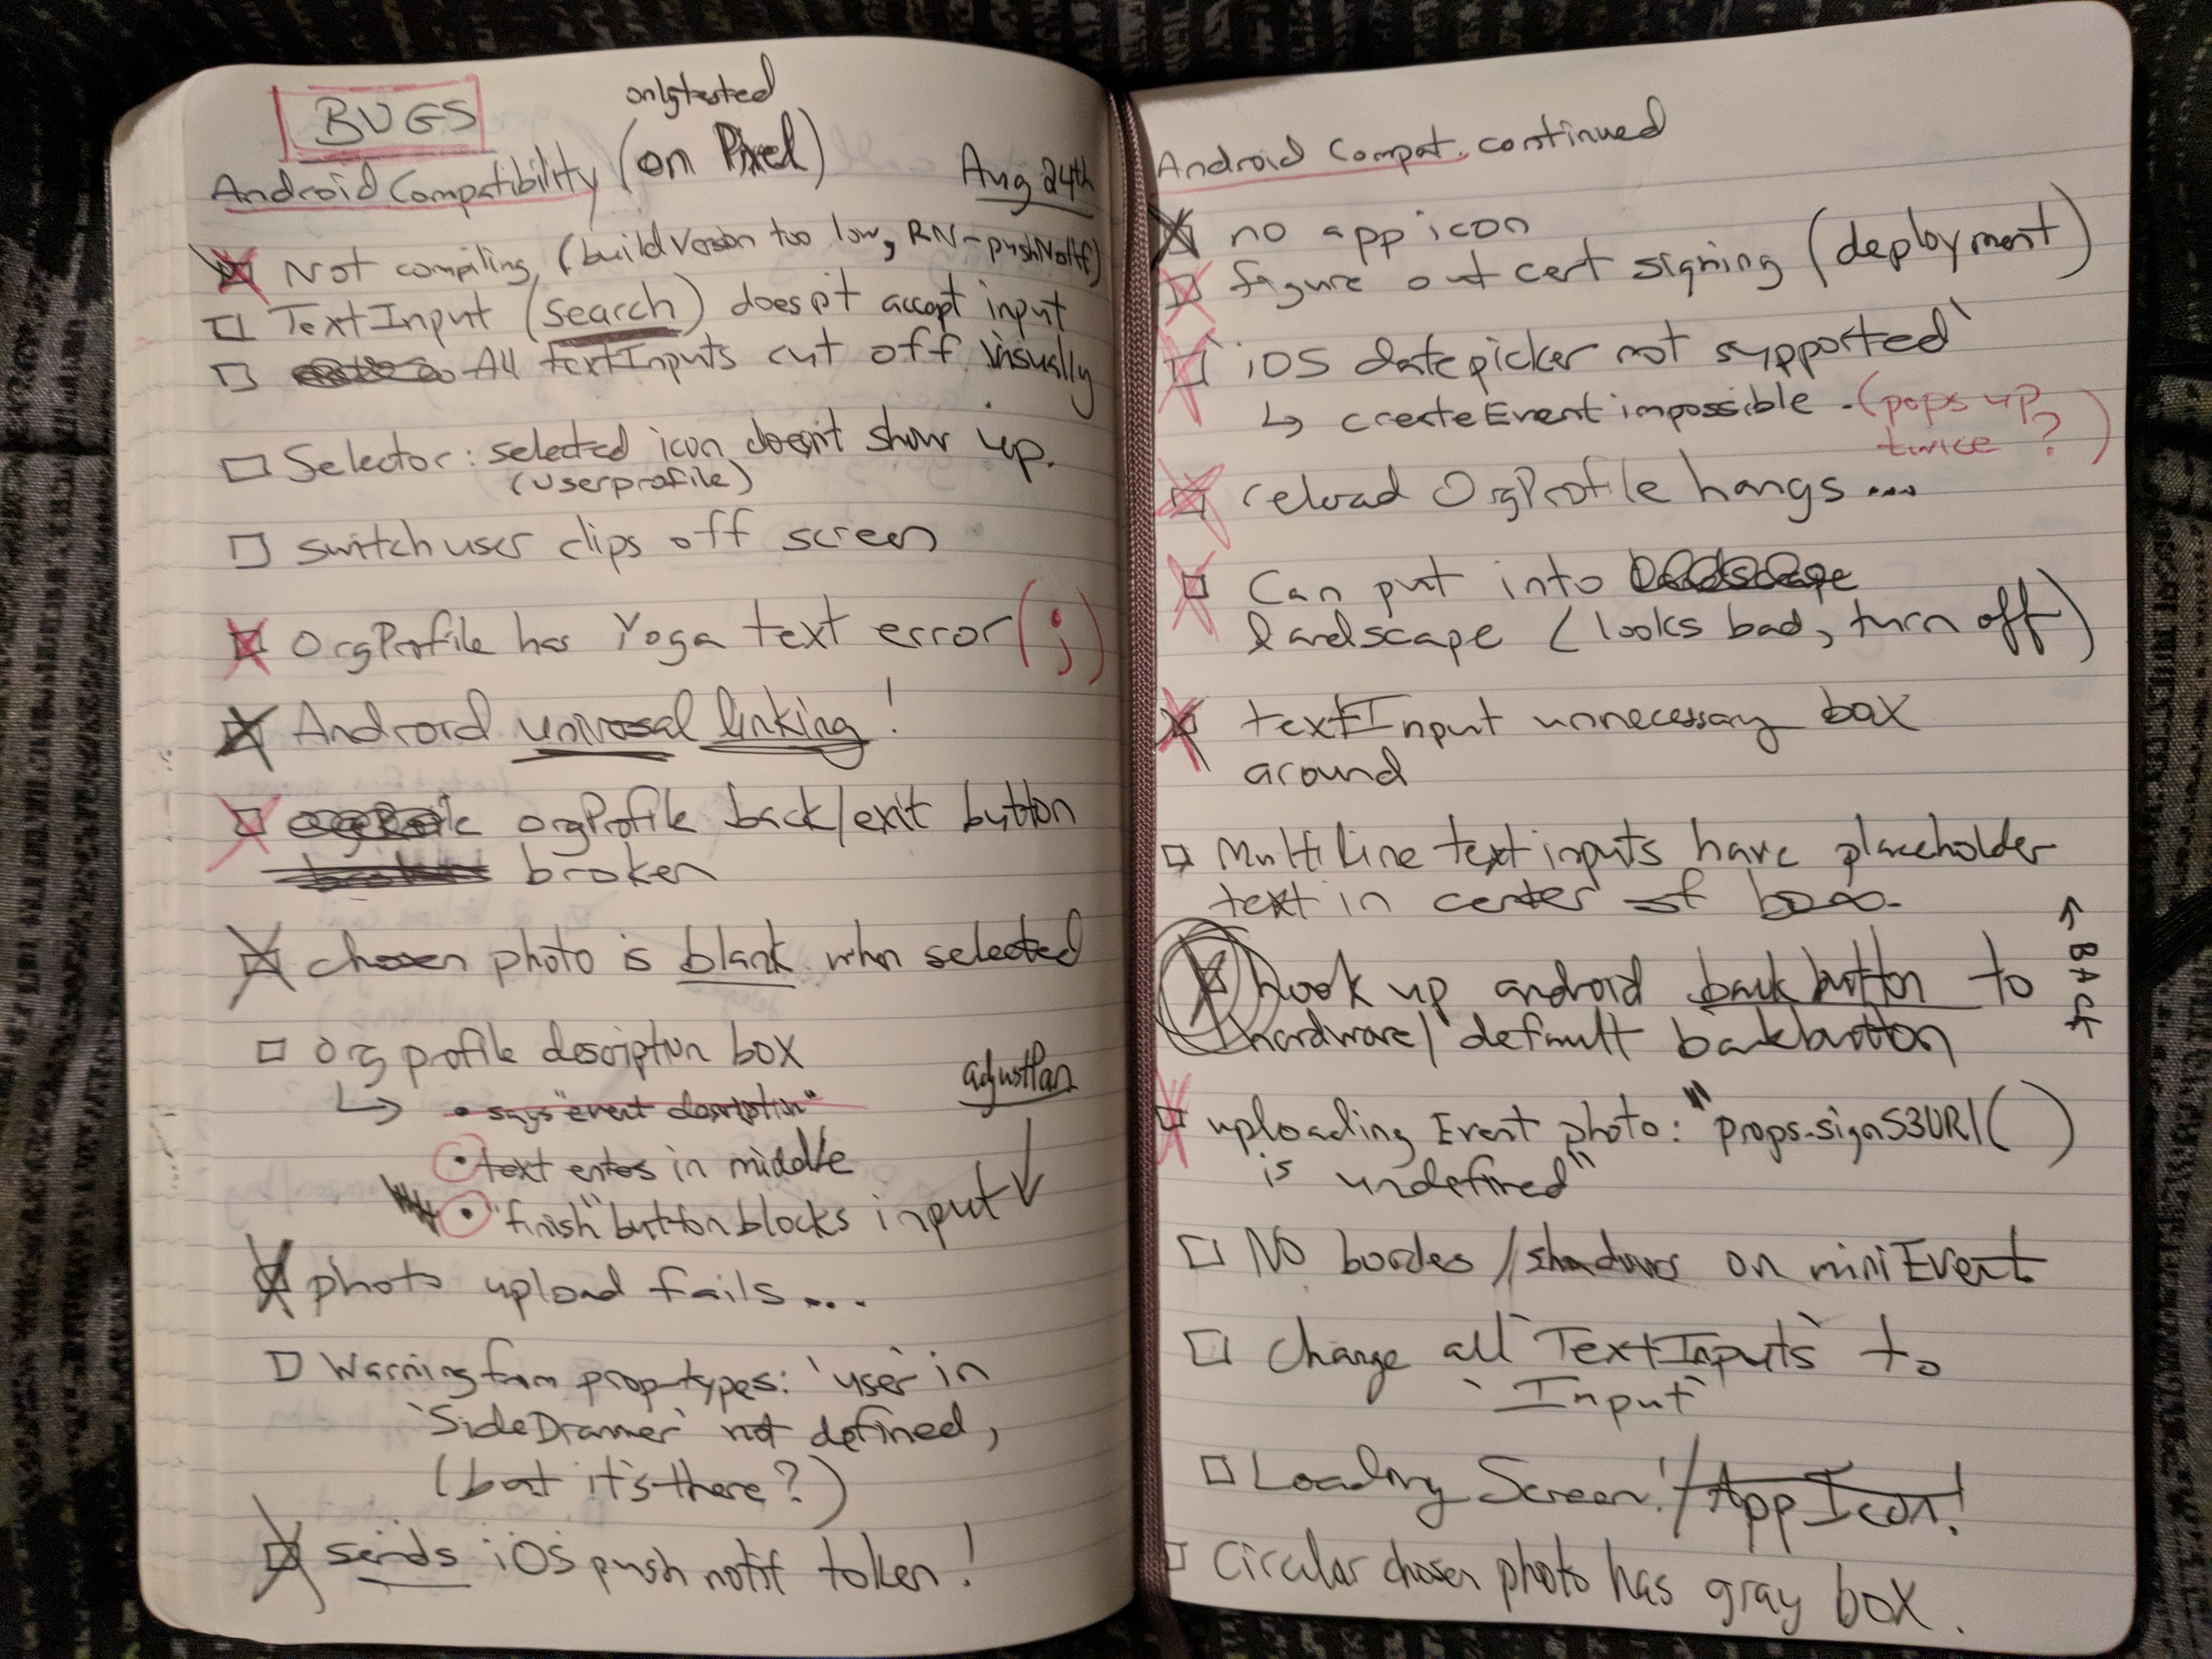 BUGS
only tested
Android Compatibility (on Pixel)
Aug 24th
Not compiling, (buildVersion too low, RN-pushNotif)
TextInput (search) doesn't accept input
All textInputs cut off visually
Selector: selected icon doesn't show up.
(userprofile)
switch user clips off screen
OrgProfile has Yoga text error (;)
Android universal linking!
orgProfile back/exit button
broken
chosen photo is blank when selected
org profile description box
adjustPan
↳ • says "event description"
• text enters in middle
• "finish" button blocks input
photo upload fails...
Warning from proptypes: `user` in
`SideDrawer` not defined,
(but it's there?)
sends iOS push notif token!
Android Compat. continued
no app icon
figure out cert signing (deployment)
`iOS datepicker not supported`
↳ createEvent impossible - (pops up
twice?)
reload OrgProfile hangs...
Can put into landscape
landscape (looks bad, turn off)
textInput unnecessary box
around
Multiline text inputs have placeholder
text in center of box.
← BACK
hook up android back button to
hardware/default backbutton
uploading Event photo: "props.signS3URI()
is undefined"
No borders//shadows on miniEvent
Change all `TextInputs` to
`Input`
Loading Screen!/App Icon!
Circular chosen photo has gray box.